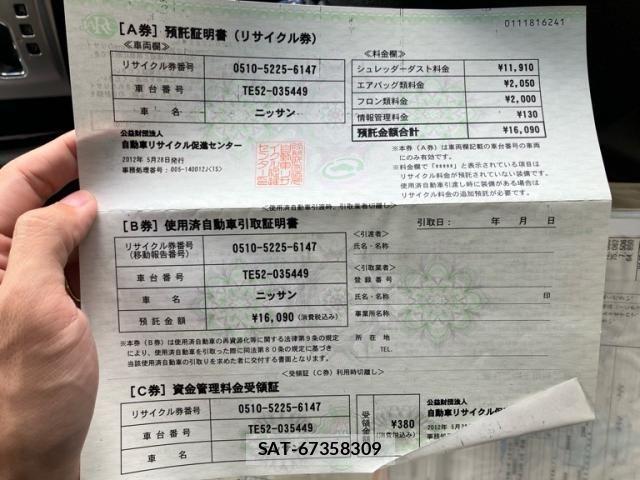 0111816241
[A券] 預託証明書 (リサイクル券)
≪車両欄≫
リサイクル券番号 0510-5225-6147
車台番号 TE52-035449
車名 ニッサン
≪料金欄≫
シュレッダーダスト料金 ¥11,910
エアバッグ類料金 ¥2,050
フロン類料金 ¥2,000
情報管理料金 ¥130
預託金額合計 ¥16,090
公益財団法人
自動車リサイクル促進センター
2012年 5月28日発行
事務処理番号：005-140012J(1S)
※本券（A券）は車両欄記載の車台番号の車両
にのみ有効です。
※料金欄で「*****」と表示されている項目は
リサイクル料金が預託されていない装備です。
使用済自動車引渡し時に装備がある場合は
リサイクル料金の追加預託が必要です。
<使用済自動車引渡時、引取業者切離し>
[B券] 使用済自動車引取証明書
引取日： 年 月 日
リサイクル券番号
(移動報告番号) 0510-5225-6147
車台番号 TE52-035449
車名 ニッサン
預託金額 ¥16,090 (消費税込み)
<引渡者>
氏名・名称
<引取業者>
登録番号
氏名・名称 印
事業所名称
所在地
TEL.
※本券（B券）は使用済自動車の再資源化等に関する法律第9条の規定
により、使用済自動車を引取った際に同法第80条の規定に基づき
当該使用済自動車の引取りを求めた者に交付する書面となります。
<受領証（C券）利用時切離し>
[C券] 資金管理料金受領証
リサイクル券番号 0510-5225-6147
車台番号 TE52-035449
車名
受領金額 ¥380
(消費税込み)
公益財団法人
自動車リサイクル
2012年 5月
SAT-67358309